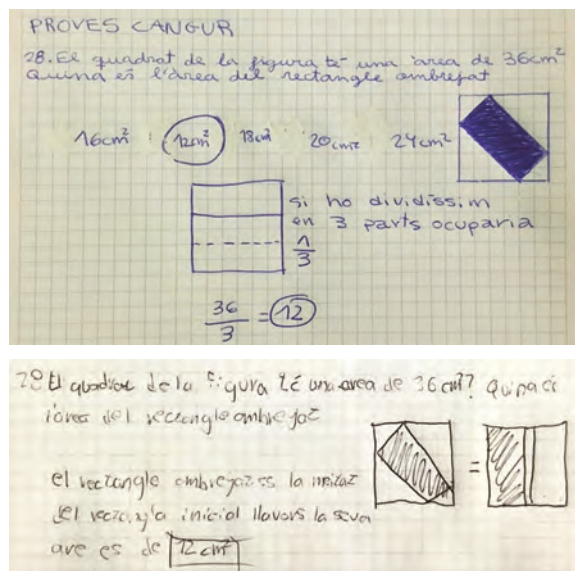 PROVES CANGUR
28. El quadrat de la figura té una àrea de 36cm²
Quina és l'àrea del rectangle ombrejat
16cm² 12cm² 18cm² 20cm² 24cm²
si ho dividíssim
en 3 parts ocuparia
1/3
36/3 = 12
28 El quadrat de la figura té una area de 36 cm²? Quina és
l'area del rectangle ombrejat
=
el rectangle ombrejat es la meitat
del inicial llavors la seva
are es de 12 cm²